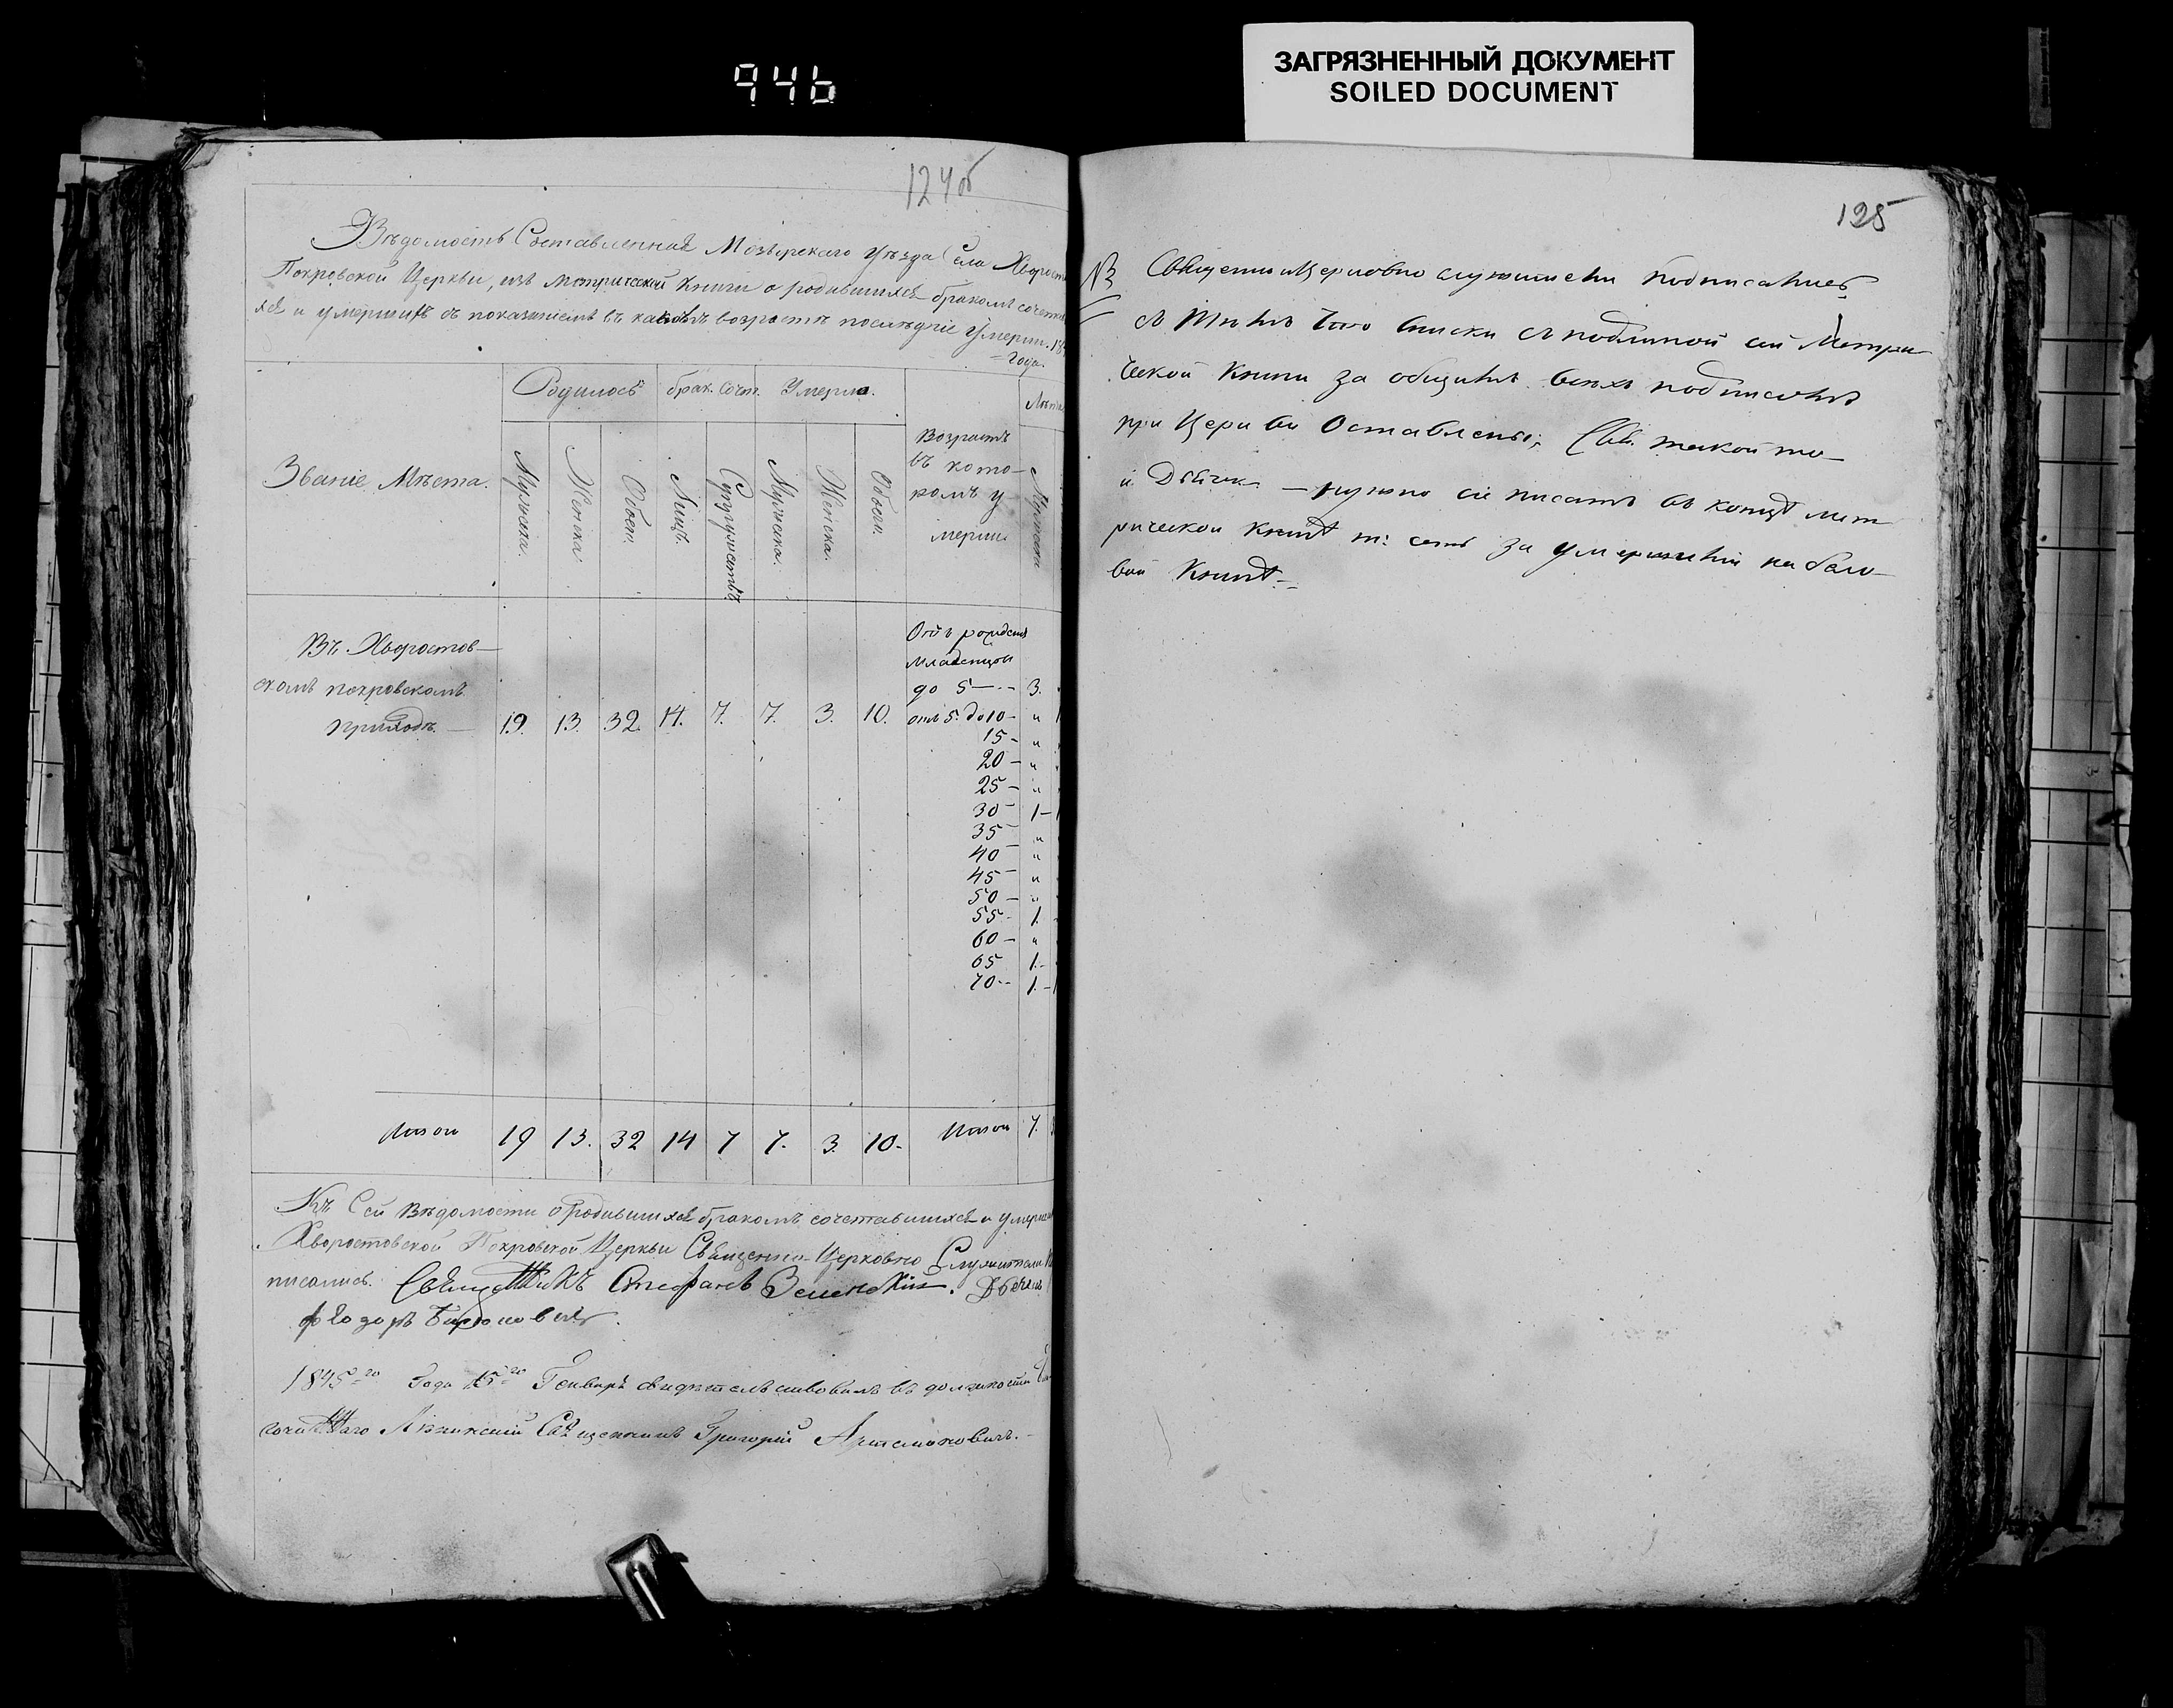 946
ЗАГРЯЗНЕННЫЙ ДОКУМЕНТ
SOILED DOCUMENT
124об
Вѣдомость Составленная Мозырскаго Уѣзда Села Хворост
Покровской Церкви, изъ метрической книги о родившихся бракомъ сочета
хся и умершихъ съ показаніемъ въ какихъ возрастѣ послѣдніе Умерли. 184
года.
Родилось брак. Сочет. Умерло.
Званіе Мѣста. Мужеска. Женска. Обоего. Лицъ. Супружествъ. Мужеска. Женска. Обоего.
Возрастъ
въ кото-
ромъ у-
мерли
Мужеска
Въ Хворостов-
скомъ покровскомъ
приходѣ. 19. 13. 32. 14. 7. 7. 3. 10.
Отъ рожденія
младенцовъ
до 5 3.
отъ 5. до 10 - "
15 - "
20 - "
25 - "
30 - 1 -
35 "
40 "
45 "
50 - "
55 - 1.
60 - "
65 1. -
70 - 1. -
Итого 19 13. 32 14 7 7. 3. 10. Итого 7.
Къ Сей Вѣдомости о родившихся бракомъ сочетавшихся и умерш
Хворостовской Покровской Церкви Священно-Церковно Служители
писались. Священникъ Стефанъ Зеленскій. Дьячекъ
Ѳеодоръ
1845го Года 15го Генваря свидѣтельствовалъ въ должности
Священникъ Григорій Артемоковичъ.
125
NB Священно Церковно служители подписавшись
съ подлиной сей Метри-
ческой Книги за общимъ всѣхъ подписомъ
при Церкви Оставлены; Свящ. такой то
и Дьячек - нужно сіе писать въ концѣ мет
рической книгѣ т: есть за умершими на бѣло-
вой Книгѣ. -